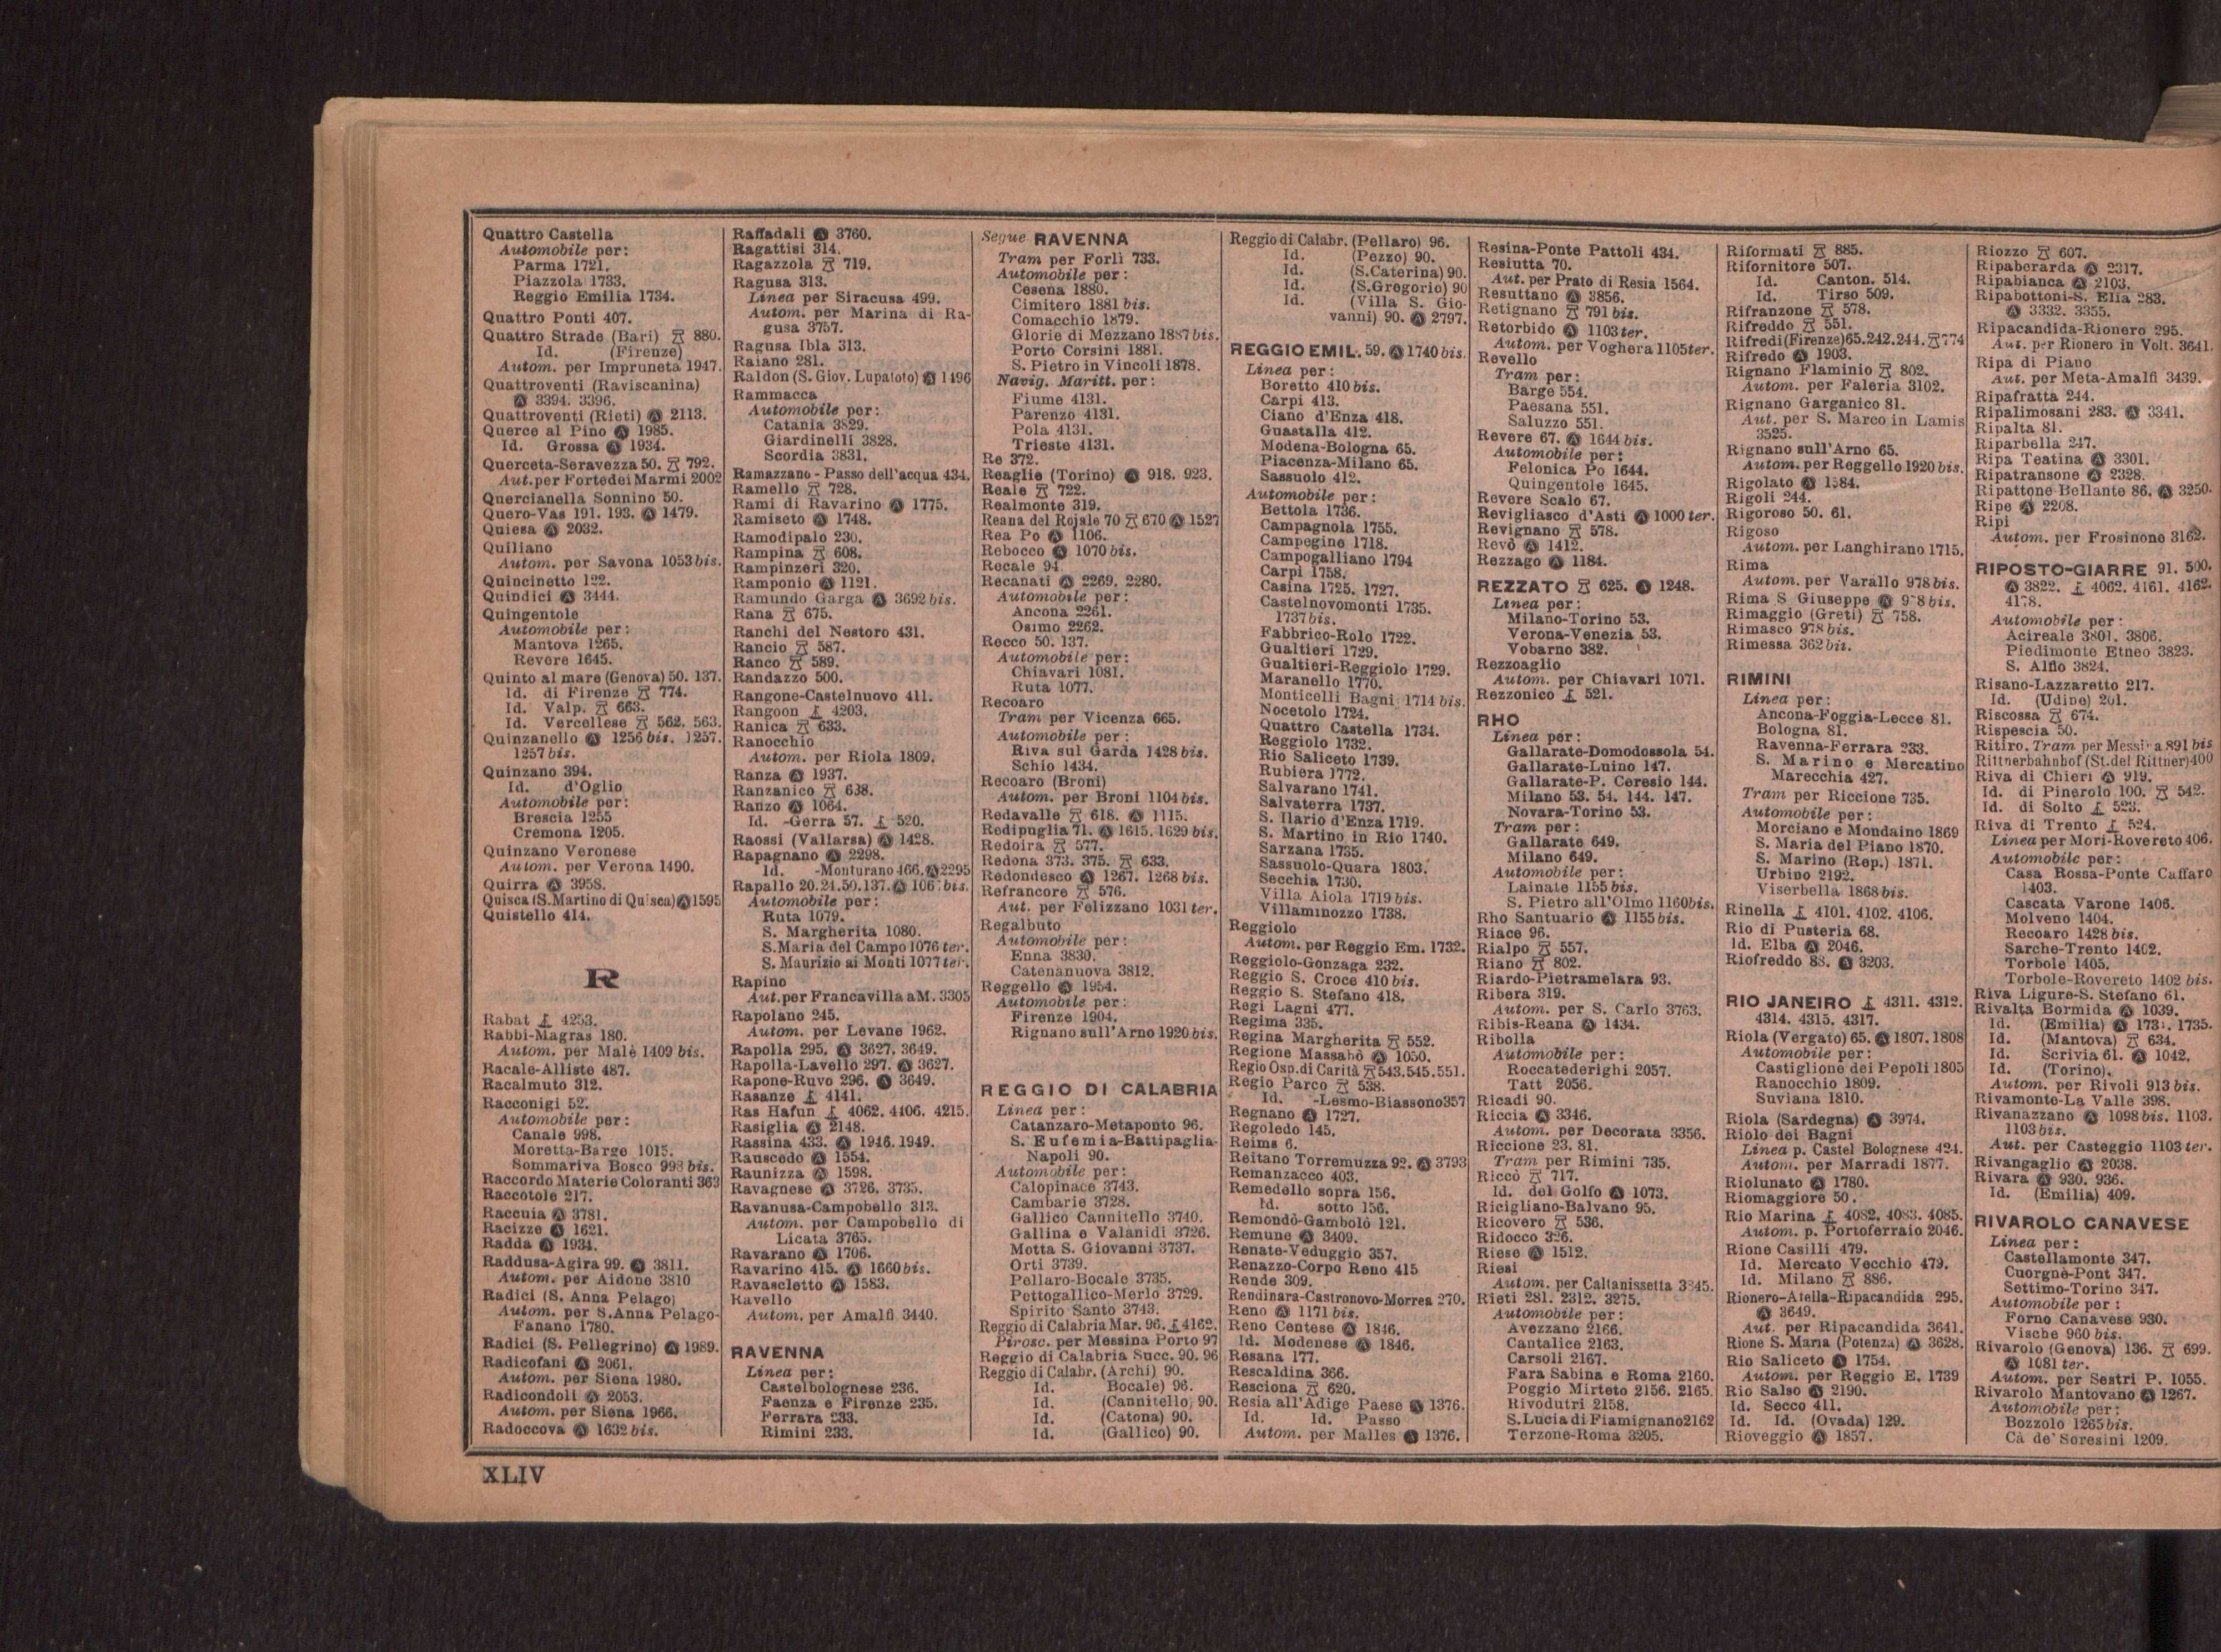 Quattro Castella
Automobile per:
Parma 1721.
Piazzola 1733.
Reggio Emilia 1734.
Quattro Ponti 407.
Quattro Strade (Bari) 880.
Id. (Firenze)
Autom. per Impruneta 1947.
Quattroventi (Raviscanina)
Ⓐ 3394. 3396.
Quattroventi (Rieti) Ⓐ 2113.
Querce al Pino Ⓐ 1985.
Id. Grossa Ⓐ 1934.
Querceta-Seravezza 50. 792.
Aut. per Forte dei Marmi 2002
Quercianella Sonnino 50.
Quero-Vas 191. 193. Ⓐ 1479.
Quiesa Ⓐ 2032.
Quiliano
Autom. per Savona 1053 bis.
Quincinetto 122.
Quindici Ⓐ 3444.
Quingentole
Automobile per:
Mantova 1265.
Revere 1645.
Quinto al mare (Genova) 50. 137.
Id. di Firenze 774.
Id. Valp. 663.
Id. Vercellese 562. 563.
Quinzanello Ⓐ 1256 bis. 1257.
1257 bis.
Quinzano 394.
Id. d'Oglio
Automobile per:
Brescia 1255
Cremona 1205.
Quinzano Veronese
Autom. per Verona 1490.
Quirra Ⓐ 3958.
Quisca (S. Martino di Quisca) Ⓐ 1595
Quistello 414.
R
Rabat 4253.
Rabbi-Magras 180.
Autom. per Malè 1409 bis.
Racale-Alliste 487.
Racalmuto 312.
Racconigi 52.
Automobile per:
Canale 998.
Moretta-Barge 1015.
Sommariva Bosco 998 bis.
Raccordo Materie Coloranti 363
Raccotole 217.
Raccuia Ⓐ 3781.
Racizze Ⓐ 1621.
Radda Ⓐ 1934.
Raddusa-Agira 99. Ⓐ 3811.
Autom. per Aidone 3810
Radici (S. Anna Pelago)
Autom. per S. Anna Pelago-
Fanano 1780.
Radici (S. Pellegrino) Ⓐ 1989.
Radicofani Ⓐ 2061.
Autom. per Siena 1980.
Radicondoli Ⓐ 2053.
Autom. per Siena 1966.
Radoccova Ⓐ 1632 bis.
Raffadali Ⓐ 3760.
Ragattisi 314.
Ragazzola 719.
Ragusa 313.
Linea per Siracusa 499.
Autom. per Marina di Ra-
gusa 3757.
Ragusa Ibla 313.
Raiano 281.
Raldon (S. Giov. Lupatoto) Ⓐ 1496
Rammacca
Automobile per:
Catania 3829.
Giardinelli 3828.
Scordia 3831.
Ramazzano - Passo dell'acqua 434.
Ramello 728.
Rami di Ravarino Ⓐ 1775.
Ramiseto Ⓐ 1748.
Ramodipalo 230.
Rampina 608.
Rampinzeri 320.
Ramponio Ⓐ 1121.
Ramundo Garga Ⓐ 3692 bis.
Rana 675.
Ranchi del Nestoro 431.
Rancio 587.
Ranco 589.
Randazzo 500.
Rangone-Castelnuovo 411.
Rangoon 4203.
Ranica 633.
Ranocchio
Autom. per Riola 1809.
Ranza Ⓐ 1937.
Ranzanico 638.
Ranzo Ⓐ 1064.
Id. -Gerra 57. 520.
Raossi (Vallarsa) Ⓐ 1428.
Rapagnano Ⓐ 2298.
Id. -Monturano 466. Ⓐ 2295
Rapallo 20. 24. 50. 137. Ⓐ bis.
Automobile per:
Ruta 1079.
S. Margherita 1080.
S. Maria del Campo 1076 ter.
S. Maurizio ai Monti 1077 ter.
Rapino
Aut. per Francavilla a M. 3305
Rapolano 245.
Autom. per Levane 1962.
Rapolla 295. Ⓐ 3627. 3649.
Rapolla-Lavello 297. Ⓐ 3627.
Rapone-Ruvo 296. Ⓐ 3649.
Rasanze 4141.
Ras Hafun 4062. 4106. 4215.
Rasiglia Ⓐ 2148.
Rassina 433. Ⓐ 1946. 1949.
Rauscedo Ⓐ 1554.
Raunizza Ⓐ 1598.
Ravagnese Ⓐ 3726. 3735.
Ravanusa-Campobello 313.
Autom. per Campobello di
Licata 3765.
Ravarano Ⓐ 1706.
Ravarino 415. Ⓐ 1660 bis.
Ravascletto Ⓐ 1583.
Ravello
Autom. per Amalfi 3440.
RAVENNA
Linea per:
Castelbolognese 236.
Faenza e Firenze 235.
Ferrara 233.
Rimini 233.
Segue RAVENNA
Tram per Forlì 733.
Automobile per:
Cesena 1880.
Cimitero 1881 bis.
Comacchio 1879.
Glorie di Mezzano 1887 bis.
Porto Corsini 1881.
S. Pietro in Vincoli 1878.
Navig. Maritt. per:
Fiume 4131.
Parenzo 4131.
Pola 4131.
Trieste 4131.
Re 372.
Reaglie (Torino) Ⓐ 918. 923.
Reale 722.
Realmonte 319.
Reana del Rojale 70 670 Ⓐ 1527
Rea Po Ⓐ 1106.
Rebocco Ⓐ 1070 bis.
Recale 94.
Recanati Ⓐ 2269. 2280.
Automobile per:
Ancona 2261.
Osimo 2262.
Recco 50. 137.
Automobile per:
Chiavari 1081.
Ruta 1077.
Recoaro
Tram per Vicenza 665.
Automobile per:
Riva sul Garda 1428 bis.
Schio 1434.
Recoaro (Broni)
Autom. per Broni 1104 bis.
Redavalle 618. Ⓐ 1115.
Redipuglia 71. Ⓐ 1615. 1629 bis.
Redoira 577.
Redona 373. 375. 633.
Redondesco Ⓐ 1267. 1268 bis.
Refrancore 576.
Aut. per Felizzano 1031 ter.
Regalbuto
Automobile per:
Enna 3830.
Catenanuova 3812.
Reggello Ⓐ 1954.
Automobile per:
Firenze 1904.
Rignano sull'Arno 1920 bis.
REGGIO DI CALABRIA
Linea per:
Catanzaro-Metaponto 96.
S. Eufemia-Battipaglia-
Napoli 90.
Automobile per:
Calopinace 3743.
Cambarie 3728.
Gallico Cannitello 3740.
Gallina e Valanidi 3726.
Motta S. Giovanni 3737.
Orti 3739.
Pellaro-Bocale 3735.
Pettogallico-Merlo 3729.
Spirito Santo 3743.
Reggio di Calabria Mar. 96. 4162.
Pirosc. per Messina Porto 97
Reggio di Calabria Succ. 90. 96
Reggio di Calabr. (Archi) 90.
Id. Bocale) 96.
Id. (Cannitello) 90.
Id. (Catona) 90.
Id. (Gallico) 90.
Reggio di Calabr. (Pellaro) 96.
Id. (Pezzo) 90.
Id. (S. Caterina) 90.
Id. (S. Gregorio) 90
Id. (Villa S. Gio-
vanni) 90. Ⓐ 2797.
REGGIO EMIL. 59. Ⓐ 1740 bis.
Linea per:
Boretto 410 bis.
Carpi 413.
Ciano d'Enza 418.
Guastalla 412.
Modena-Bologna 65.
Piacenza-Milano 65.
Sassuolo 412.
Automobile per:
Bettola 1736.
Campagnola 1755.
Campegine 1718.
Campogalliano 1794
Carpi 1758.
Casina 1725. 1727.
Castelnovomonti 1735.
1737 bis.
Fabbrico-Rolo 1722.
Gualtieri 1729.
Gualtieri-Reggiolo 1729.
Maranello 1770.
Monticelli Bagni 1714 bis.
Nocetolo 1724.
Quattro Castella 1734.
Reggiolo 1732.
Rio Saliceto 1739.
Rubiera 1772.
Salvarano 1741.
Salvaterra 1737.
S. Ilario d'Enza 1719.
S. Martino in Rio 1740.
Sarzana 1735.
Sassuolo-Quara 1803.
Secchia 1730.
Villa Aiola 1719 bis.
Villaminozzo 1738.
Reggiolo
Autom. per Reggio Em. 1732.
Reggiolo-Gonzaga 232.
Reggio S. Croce 410 bis.
Reggio S. Stefano 418.
Regi Lagni 477.
Regima 335.
Regina Margherita 552.
Regione Massabò Ⓐ 1050.
Regio Osp. di Carità 543. 545. 551.
Regio Parco 538.
Id. -Lesmo-Biassono 357
Regnano Ⓐ 1727.
Regoledo 145.
Reima 6.
Reitano Torremuzza 92. Ⓐ 3793
Remanzacco 403.
Remedello sopra 156.
Id. sotto 156.
Remondò-Gambolò 121.
Remune Ⓐ 3409.
Renate-Veduggio 357.
Renazzo-Corpo Reno 415
Rende 309.
Rendinara-Castronovo-Morrea 270.
Reno Ⓐ 1171 bis.
Reno Centese Ⓐ 1846.
Id. Modenese Ⓐ 1846.
Resana 177.
Rescaldina 366.
Resciona 620.
Resia all'Adige Paese Ⓐ 1376.
Id. Id. Passo
Autom. per Malles Ⓐ 1376.
Resina-Ponte Pattoli 434.
Resiutta 70.
Aut. per Prato di Resia 1564.
Resuttano Ⓐ 3856.
Retignano 791 bis.
Retorbido Ⓐ 1103 ter.
Autom. per Voghera 1105 ter.
Revello
Tram per:
Barge 554.
Paesana 551.
Saluzzo 551.
Revere 67. Ⓐ 1644 bis.
Automobile per:
Felonica Po 1644.
Quingentole 1645.
Revere Scalo 67.
Revigliasco d'Asti Ⓐ 1000 ter.
Revignano 578.
Revò Ⓐ 1412.
Rezzago Ⓐ 1184.
REZZATO 625. Ⓐ 1248.
Linea per:
Milano-Torino 53.
Verona-Venezia 53.
Vobarno 382.
Rezzoaglio
Autom. per Chiavari 1071.
Rezzonico 521.
RHO
Linea per:
Gallarate-Domodossola 54.
Gallarate-Luino 147.
Gallarate-P. Ceresio 144.
Milano 53. 54. 144. 147.
Novara-Torino 53.
Tram per:
Gallarate 649.
Milano 649.
Automobile per:
Lainate 1155 bis.
S. Pietro all'Olmo 1160 bis.
Rho Santuario Ⓐ 1155 bis.
Riace 96.
Rialpo 557.
Riano 802.
Riardo-Pietramelara 93.
Ribera 319.
Autom. per S. Carlo 3763.
Ribis-Reana Ⓐ 1434.
Ribolla
Automobile per:
Roccatederighi 2057.
Tatt 2056.
Ricadi 90.
Riccia Ⓐ 3346.
Autom. per Decorata 3356.
Riccione 23. 81.
Tram per Rimini 735.
Riccò 717.
Id. del Golfo Ⓐ 1073.
Ricigliano-Balvano 95.
Ricovero 536.
Ridocco 326.
Riese Ⓐ 1512.
Riesi
Autom. per Caltanissetta 3845.
Rieti 281. 2312. 3275.
Automobile per:
Avezzano 2166.
Cantalice 2163.
Carsoli 2167.
Fara Sabina e Roma 2160.
Poggio Mirteto 2156. 2165.
Rivodutri 2158.
S. Lucia di Fiamignano 2162
Terzone-Roma 3205.
Riformati 885.
Rifornitore 507.
Id. Canton. 514.
Id. Tirso 509.
Rifranzone 578.
Rifreddo 551.
Rifredi (Firenze) 65. 242. 244. 774
Rifredo Ⓐ 1903.
Rignano Flaminio 802.
Autom. per Faleria 3102.
Rignano Garganico 81.
Aut. per S. Marco in Lamis
3525.
Rignano sull'Arno 65.
Autom. per Reggello 1920 bis.
Rigolato Ⓐ 1584.
Rigoli 244.
Rigoroso 50. 61.
Rigoso
Autom. per Langhirano 1715.
Rima
Autom. per Varallo 978 bis.
Rima S Giuseppe Ⓐ 978 bis.
Rimaggio (Greti) 758.
Rimasco 978 bis.
Rimessa 362 bis.
RIMINI
Linea per:
Ancona-Foggia-Lecce 81.
Bologna 81.
Ravenna-Ferrara 233.
S. Marino e Mercatino
Marecchia 427.
Tram per Riccione 735.
Automobile per:
Morciano e Mondaino 1869
S. Maria del Piano 1870.
S. Marino (Rep.) 1871.
Urbino 2192.
Viserbella 1868 bis.
Rinella 4101. 4102. 4106.
Rio di Pusteria 68.
Id. Elba Ⓐ 2046.
Riofreddo 88. Ⓐ 3203.
RIO JANEIRO 4311. 4312.
4314. 4315. 4317.
Riola (Vergato) 65. Ⓐ 1807. 1808
Automobile per:
Castiglione dei Pepoli 1805
Ranocchio 1809.
Suviana 1810.
Riola (Sardegna) Ⓐ 3974.
Riolo dei Bagni
Linea p. Castel Bolognese 424.
Autom. per Marradi 1877.
Riolunato Ⓐ 1780.
Riomaggiore 50.
Rio Marina 4082. 4083. 4085.
Autom. p. Portoferraio 2046.
Rione Casilli 479.
Id. Mercato Vecchio 479.
Id. Milano 886.
Rionero-Atella-Ripacandida 295.
Ⓐ 3649.
Aut. per Ripacandida 3641.
Rione S. Maria (Potenza) Ⓐ 3628.
Rio Saliceto Ⓐ 1754.
Autom. per Reggio E. 1739
Rio Salso Ⓐ 2190.
Id. Secco 411.
Id. Id. (Ovada) 129.
Rioveggio Ⓐ 1857.
Riozzo 607.
Ripaberarda Ⓐ 2317.
Ripabianca Ⓐ 2103.
Ripabottoni-S. Elia 283.
Ⓐ 3332. 3355.
Ripacandida-Rionero 295.
Aut. per Rionero in Volt. 3641.
Ripa di Piano
Aut. per Meta-Amalfi 3439.
Ripafratta 244.
Ripalimosani 283. Ⓐ 3341.
Ripalta 81.
Riparbella 247.
Ripa Teatina Ⓐ 3301.
Ripatransone Ⓐ 2328.
Ripattone Bellante 86. Ⓐ 3250.
Ripe Ⓐ 2208.
Ripi
Autom. per Frosinone 3162.
RIPOSTO-GIARRE 91. 500.
Ⓐ 3822. 4062. 4161. 4162.
4178.
Automobile per:
Acireale 3801. 3806.
Piedimonte Etneo 3823.
S. Alfio 3824.
Risano-Lazzaretto 217.
Id. (Udine) 201.
Riscossa 674.
Rispescia 50.
Ritiro. Tram per Messina 891 bis
Rittnerbahnhof (St. del Rittner) 400
Riva di Chieri Ⓐ 919.
Id. di Pinerolo 100. 542.
Id. di Solto 523.
Riva di Trento 524.
Linea per Mori-Rovereto 406.
Automobile per:
Casa Rossa-Ponte Caffaro
1403.
Cascata Varone 1406.
Molveno 1404.
Recoaro 1428 bis.
Sarche-Trento 1402.
Torbole 1405.
Torbole-Rovereto 1402 bis.
Riva Ligure-S. Stefano 61.
Rivalta Bormida Ⓐ 1039.
Id. (Emilia) Ⓐ 1735.
Id. (Mantova) 634.
Id. Scrivia 61. Ⓐ 1042.
Id. (Torino).
Autom. per Rivoli 913 bis.
Rivamonte-La Valle 398.
Rivanazzano Ⓐ 1098 bis. 1103.
1103 bis.
Aut. per Casteggio 1103 ter.
Rivangaglio Ⓐ 2038.
Rivara Ⓐ 930. 936.
Id. (Emilia) 409.
RIVAROLO CANAVESE
Linea per:
Castellamonte 347.
Cuorgnè-Pont 347.
Settimo-Torino 347.
Automobile per:
Forno Canavese 930.
Vische 960 bis.
Rivarolo (Genova) 136. 699.
Ⓐ 1081 ter.
Autom. per Sestri P. 1055.
Rivarolo Mantovano Ⓐ 1267.
Automobile per:
Bozzolo 1265 bis.
Cà de' Soresini 1209.
XLIV